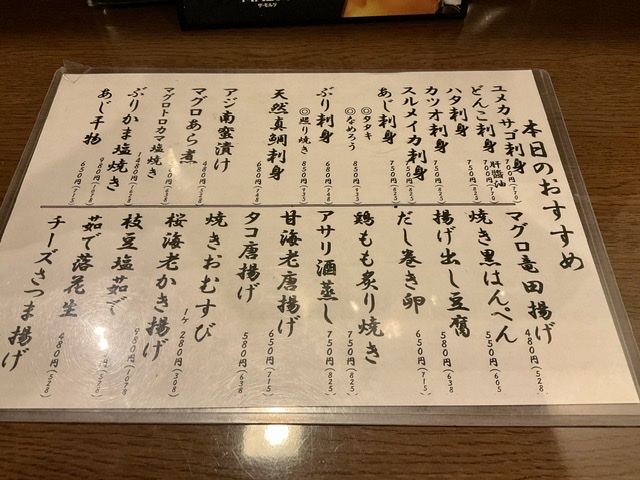 本日のおすすめ
ユメカサゴ刺身 700円(770)
どんこ刺身 肝醤油 700円(770)
ハタ刺身 750円
カツオ刺身 750円
スルメイカ刺身
あじ刺身 750円(825)
◎タタキ
◎なめろう 850円(935)
ぶり刺身 680円(748)
◎照り焼き 850円(935)
天然真鯛刺身 680円
アジ南蛮漬け
マグロあら煮 480円
マグロトロカマ塩焼き
ぶりかま塩焼き 980円(1078)
あじ干物 650円
マグロ竜田揚げ 480円(528)
焼き黒はんぺん 550円(605)
揚げ出し豆腐 580円(638)
だし巻き卵 650円(715)
鶏もも炙り焼き 750円(825)
アサリ酒蒸し 750円(825)
甘海老唐揚げ 650円(715)
タコ唐揚げ 580円(638)
焼きおむすび 1ケ 280円(308)
桜海老かき揚げ 980円(1078)
枝豆塩茹で
茹で落花生 480円(528)
チーズさつま揚げ